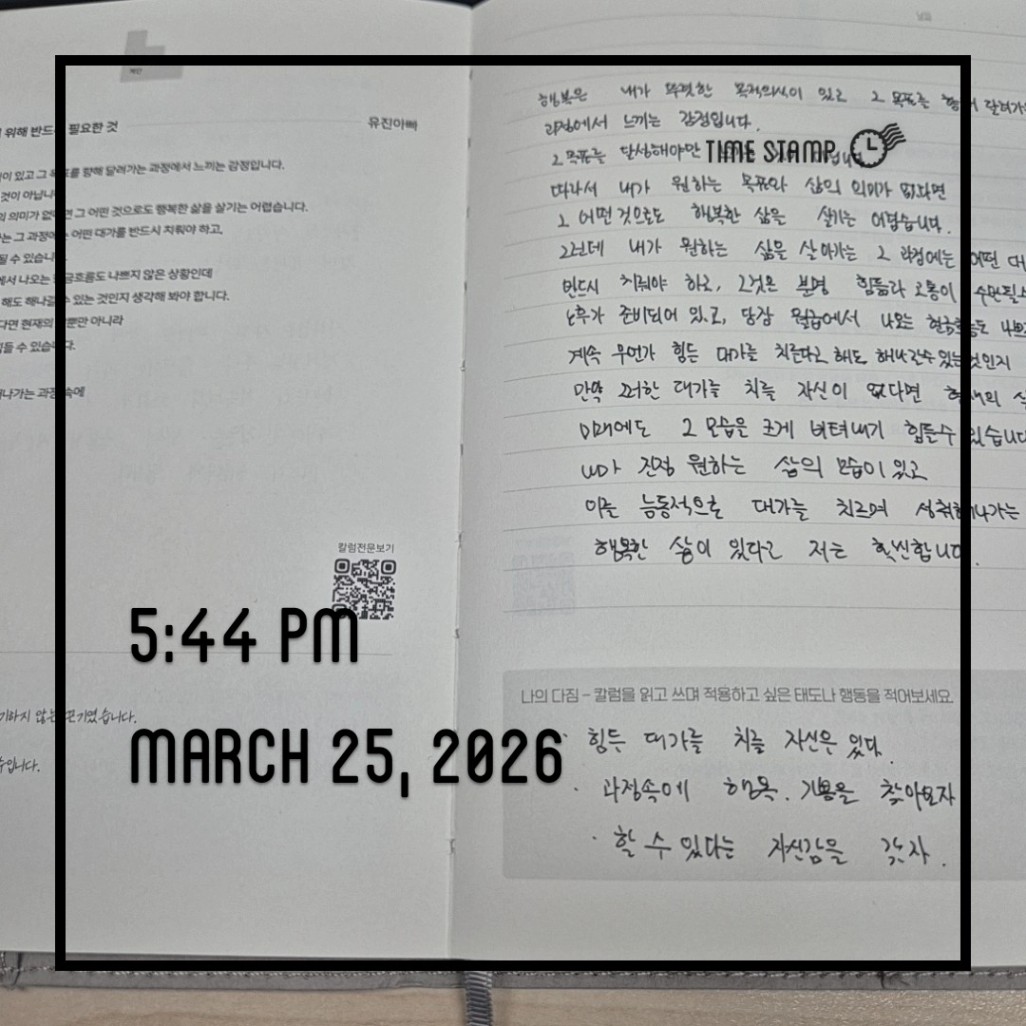 계단
위해 반드시 필요한 것
유진아빠
이 있고 그 목표를 향해 달려가는 과정에서 느끼는 감정입니다.
것이 아닙니다
의 의미가 없다면 그 어떤 것으로도 행복한 삶을 살기는 어렵습니다.
는 그 과정에는 어떤 대가를 반드시 치뤄야 하고,
될 수 있습니다.
에서 나오는 현금흐름도 나쁘지 않은 상황인데
해도 해나갈 수 있는 것인지 생각해 봐야 합니다.
다면 현재의 삶뿐만 아니라
힘들 수 있습니다.
해나가는 과정 속에
칼럼전문보기
기하지 않는 끈기였습니다.
수입니다.
5:44 PM
MARCH 25, 2026
날짜
TIME STAMP
행복은 내가 뚜렷한 목적의식이 있고 그 목표를 향해 달려가
과정에서 느끼는 감정입니다.
그 목표를 달성해야만
따라서 내가 원하는 목표와 삶의 의미가 없다면
그 어떤 것으로도 행복한 삶을 살기는 어렵습니다.
그런데 내가 원하는 삶을 살아가는 그 과정에는 어떤 대
반드시 치뤄야 하고, 그것은 분명 힘듦과 고통이 수반될 수
노후가 준비되어 있고, 당장 월급에서 나오는 현금흐름도 나쁘
계속 무언가 힘든 대가를 치른다고 해도 해나갈수 있는 것인지
만약 그러한 대가를 치를 자신이 없다면 현재의 삶
미래에도 그 모습은 크게 버텨내기 힘들수 있습니다
내가 진정 원하는 삶의 모습이 있고
이를 능동적으로 대가를 치르며 성취해나가는
행복한 삶이 있다고 저는 확신합니다
나의 다짐 – 칼럼을 읽고 쓰며 적용하고 싶은 태도나 행동을 적어보세요.
· 힘든 대가를 치를 자신은 있다.
· 과정속에 행복, 기쁨을 찾아보자
· 할 수 있다는 자신감을 갖자.